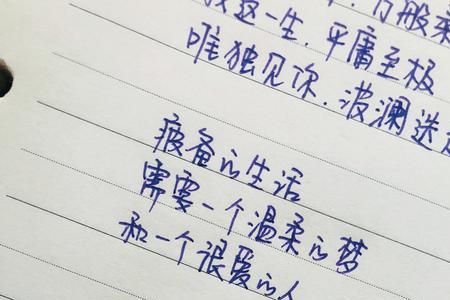 我这一生,平庸至极
唯独见你,波澜迭起
疲备的生活
需要一个温柔的梦
和一个很爱的人